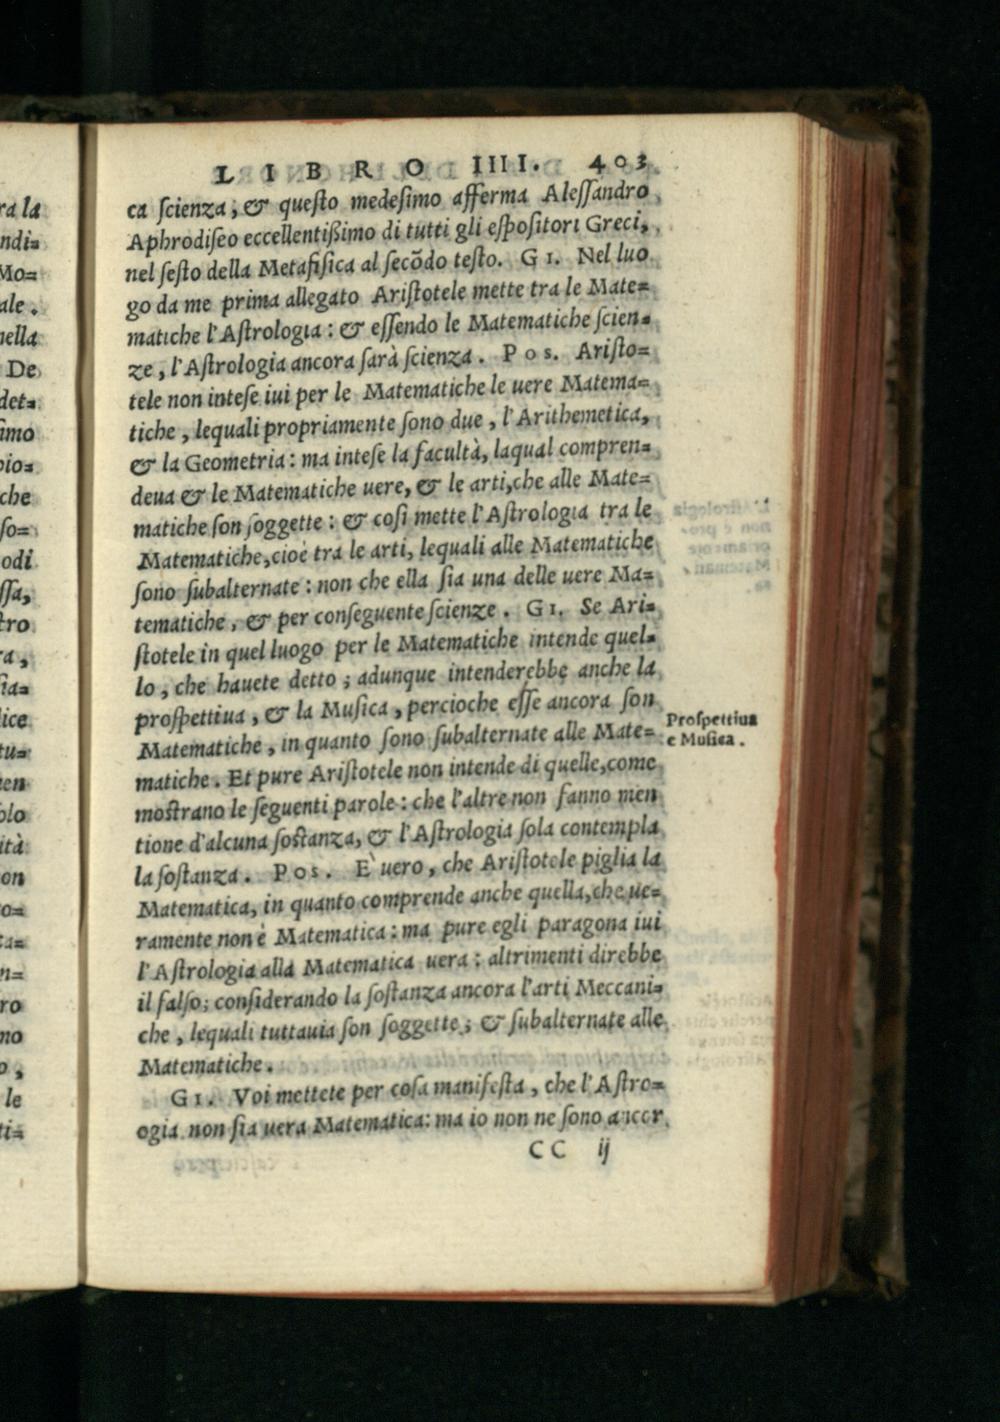 LIBRO IIII. 403
ca ſcienza, & queſto medeſimo afferma Aleſſandro
Aphrodiſeo eccellentißimo di tutti gli eſpoſitori Greci,
nel ſeſto della Metafiſica al ſecōdo teſto. GI. Nel luo
go da me prima allegato Ariſtotele mette tra le Mate=
matiche l'Aſtrologia: & eſſendo le Matematiche ſcien=
ze, l'Aſtrologia ancora ſarà ſcienza. Pos. Ariſto=
tele non inteſe iui per le Matematiche le uere Matema=
tiche, lequali propriamente ſono due, l'Arithemetica,
& la Geometria: ma inteſe la facultà, laqual compren=
deua & le Matematiche uere, & le arti, che alle Mate=
matiche ſon ſoggette: & coſi mette l'Aſtrologia tra le
Matematiche, cioè tra le arti, lequali alle Matematiche
ſono ſubalternate: non che ella ſia una delle uere Ma=
tematiche, & per conſeguente ſcienze. GI. Se Ari=
ſtotele in quel luogo per le Matematiche intende quel=
lo, che hauete detto; adunque intenderebbe anche la
proſpettiua, & la Muſica, percioche eſſe ancora ſon
Matematiche, in quanto ſono ſubalternate alle Mate=
matiche. Et pure Ariſtotele non intende di quelle, come
moſtrano le ſeguenti parole: che l'altre non fanno men
tione d'alcuna ſoſtanza, & l'Aſtrologia ſola contempla
la ſoſtanza. Pos. E' uero, che Ariſtotele piglia la
Matematica, in quanto comprende anche quella, che ue=
ramente non è Matematica: ma pure egli paragona iui
l'Aſtrologia alla Matematica uera: altrimenti direbbe
il falſo; conſiderando la ſoſtanza ancora l'arti Meccani=
che, lequali tuttauia ſon ſoggette; & ſubalternate alle
Matematiche.
GI. Voi mettete per coſa manifeſta, che l'Aſtro=
ogia non ſia uera Matematica: ma io non ne ſono ancor
CC ij
Proſpettiua
e Muſica.
ra la
ndi=
Mo=
ale.
nella
De
det=
ſimo
che
ſo=
odi
ſſa,
tro
ra,
ſia=
lice
tu=
olo
ità
on
ro
mo
le
ti=